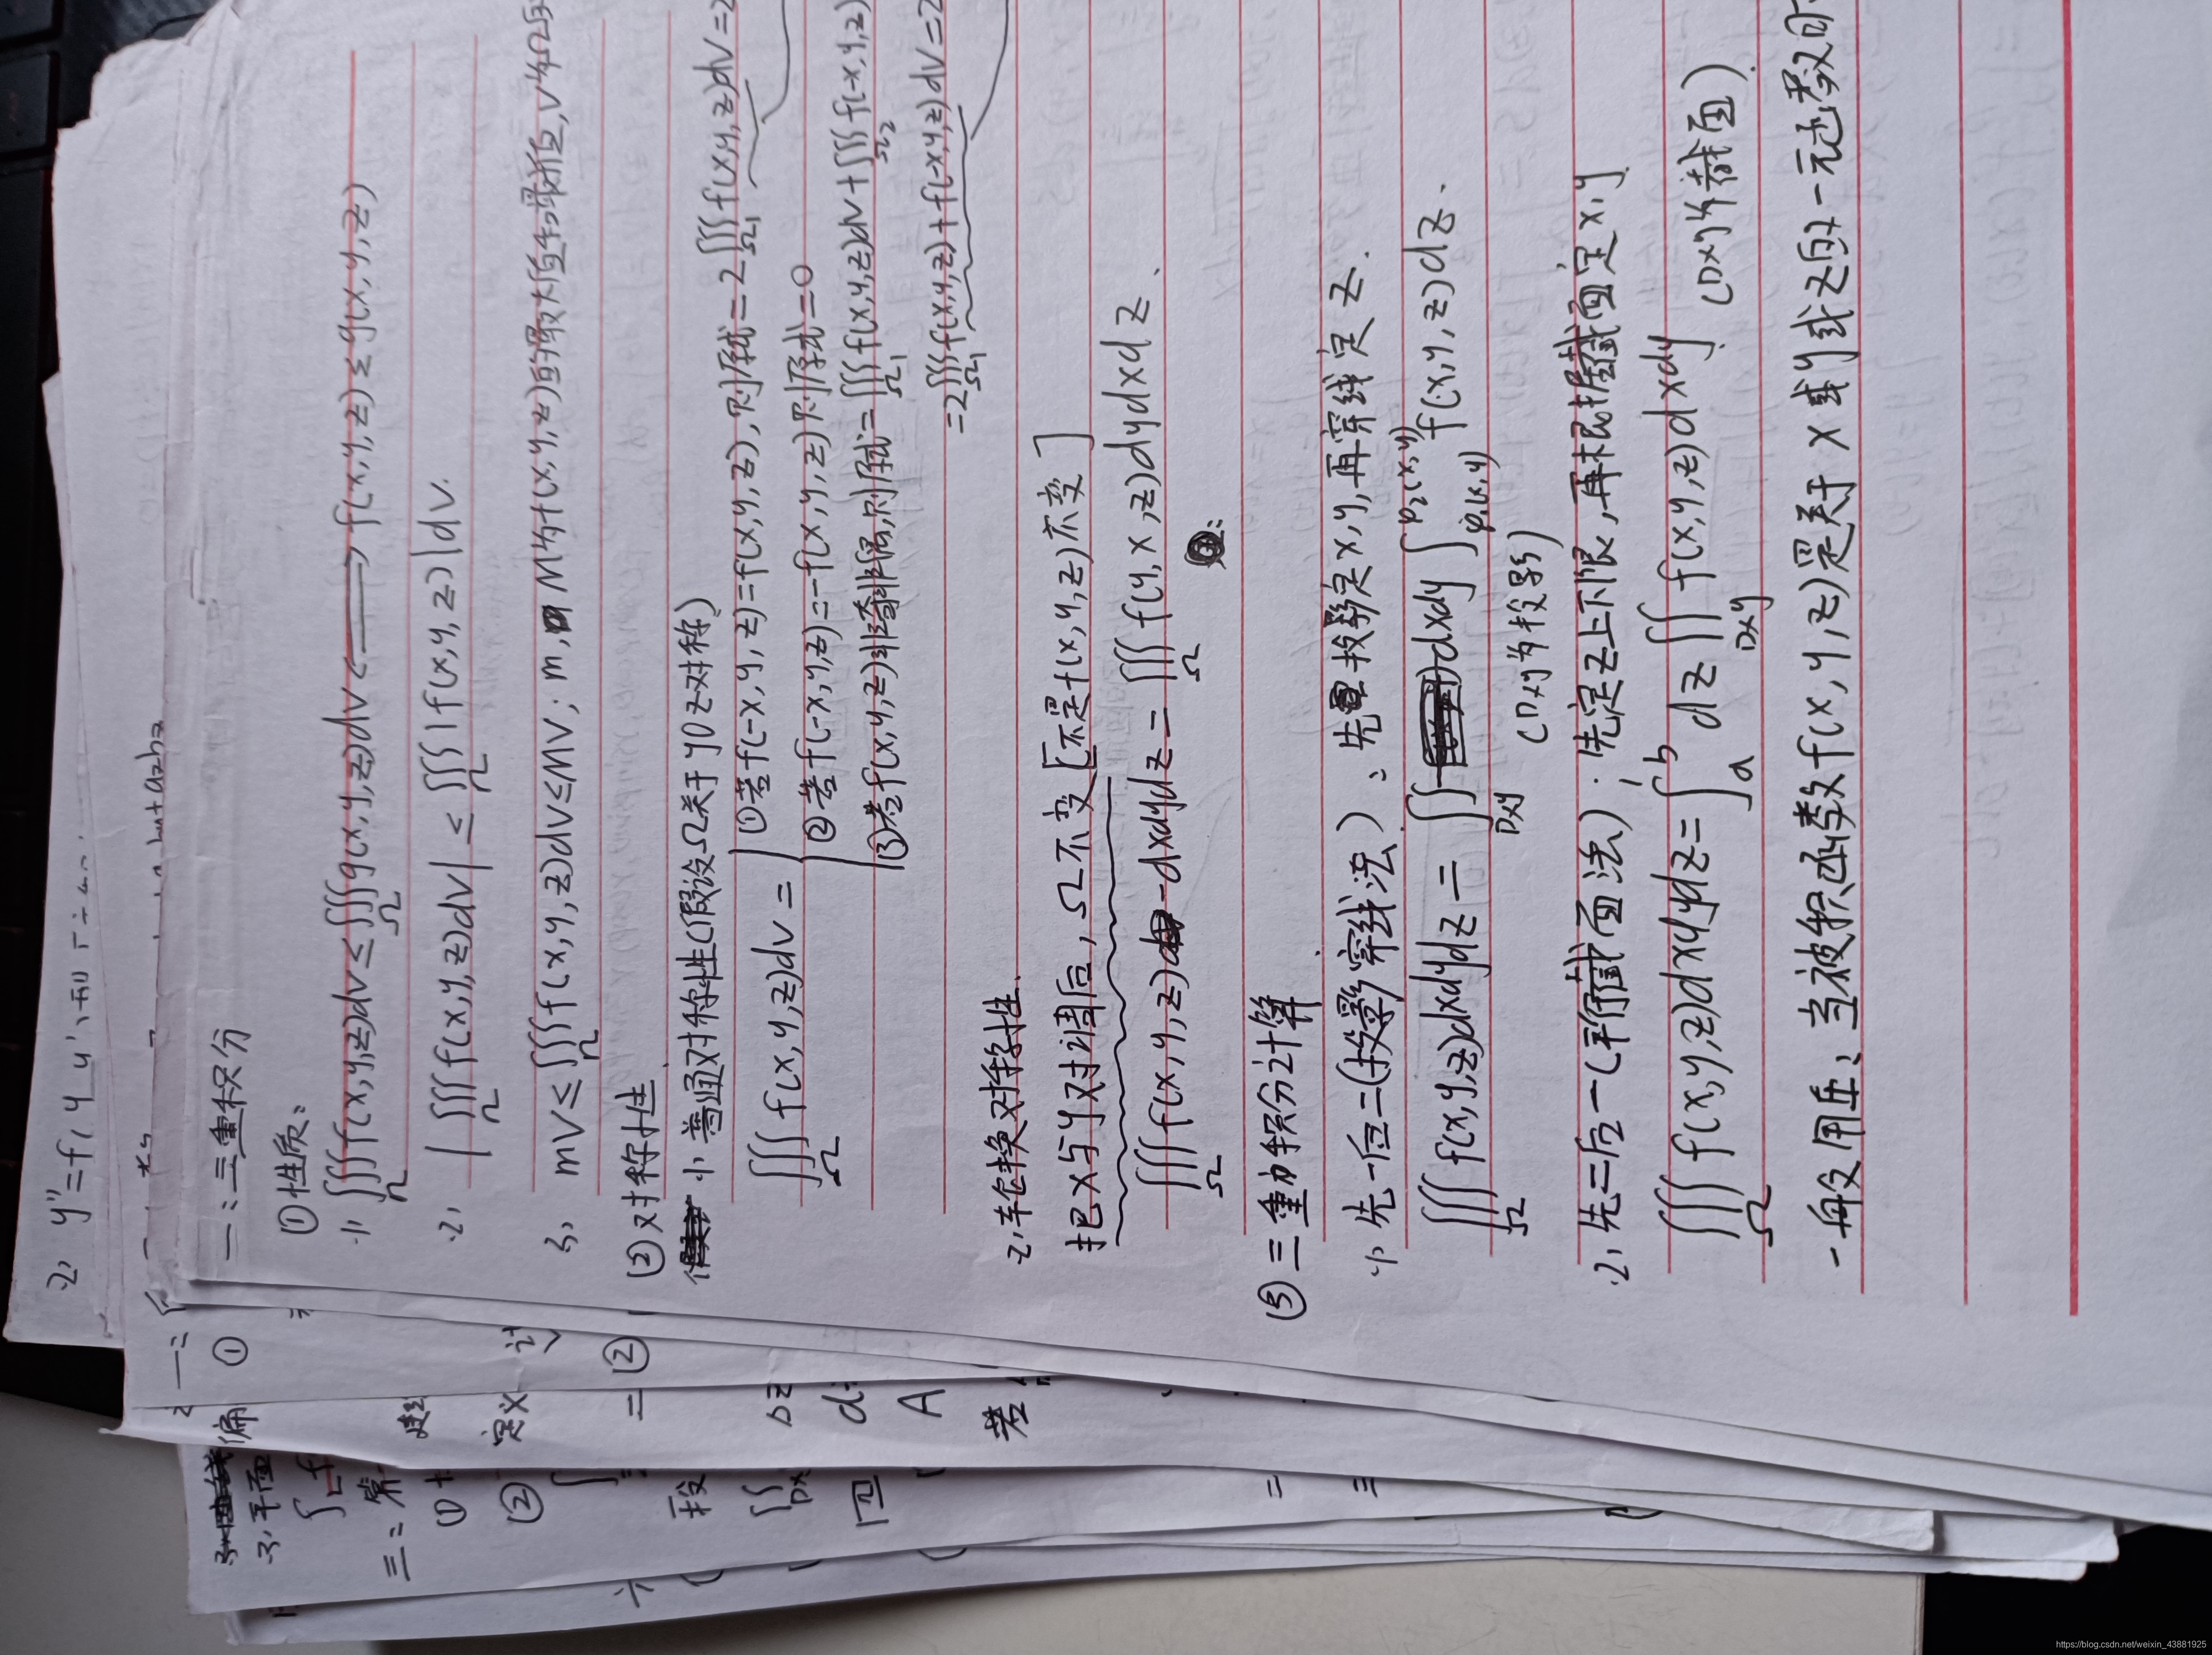 2, y''=f(y
一:三重积分
①性质:
1, ∭Ω f(x,y,z)dv≤∭Ω g(x,y,z)dv <——> f(x,y,z)≤g(x,y,z)
2, |∭Ω f(x,y,z)dv| ≤ ∭Ω |f(x,y,z)|dv.
3, mV≤∭Ω f(x,y,z)dv≤MV; m, M为f(x,y,z)的最大值与最小值,V为Ω
②对称性
1, 普通对称性(假设Ω关于yoz对称)
∭Ω f(x,y,z)dv=
①若f(-x,y,z)=f(x,y,z),则原式=2∭Ω1 f(x,y,z)dv=2
②若f(-x,y,z)=-f(x,y,z)则原式=0
③若f(x,y,z)非奇非偶,则原式=∭Ω1 f(x,y,z)dv+∭Ω2 f(-x,y,z)
=2∭Ω1 f(x,y,z)+f(-x,y,z)dv=2
2, 轮换对称性
把x与y对调后,Ω不变[不是f(x,y,z)不变]
∭Ω f(x,y,z) dxdydz=∭Ω f(y,x,z)dydxdz.
③三重积分计算
1, 先一后二(投影穿线法): 先投影定x,y,再穿线定z.
∭Ω f(x,y,z)dxdydz=∬Dxy dxdy∫φ1(x,y)φ2(x,y) f(x,y,z)dz.
(Dxy为投影)
2, 先二后一(平行截面法): 先定z上下限,再根据截面定x,y
∭Ω f(x,y,z)dxdydz=∫ab dz∬Dxy f(x,y,z)dxdy (Dxy为截面)
一般用在: 当被积函数f(x,y,z)是关于x或y或z的一元函数时
一:
①
偏
3, 平面
三: 第
①
② 定义
= ②
Dx
A
若
https://blog.csdn.net/weixin_43881925